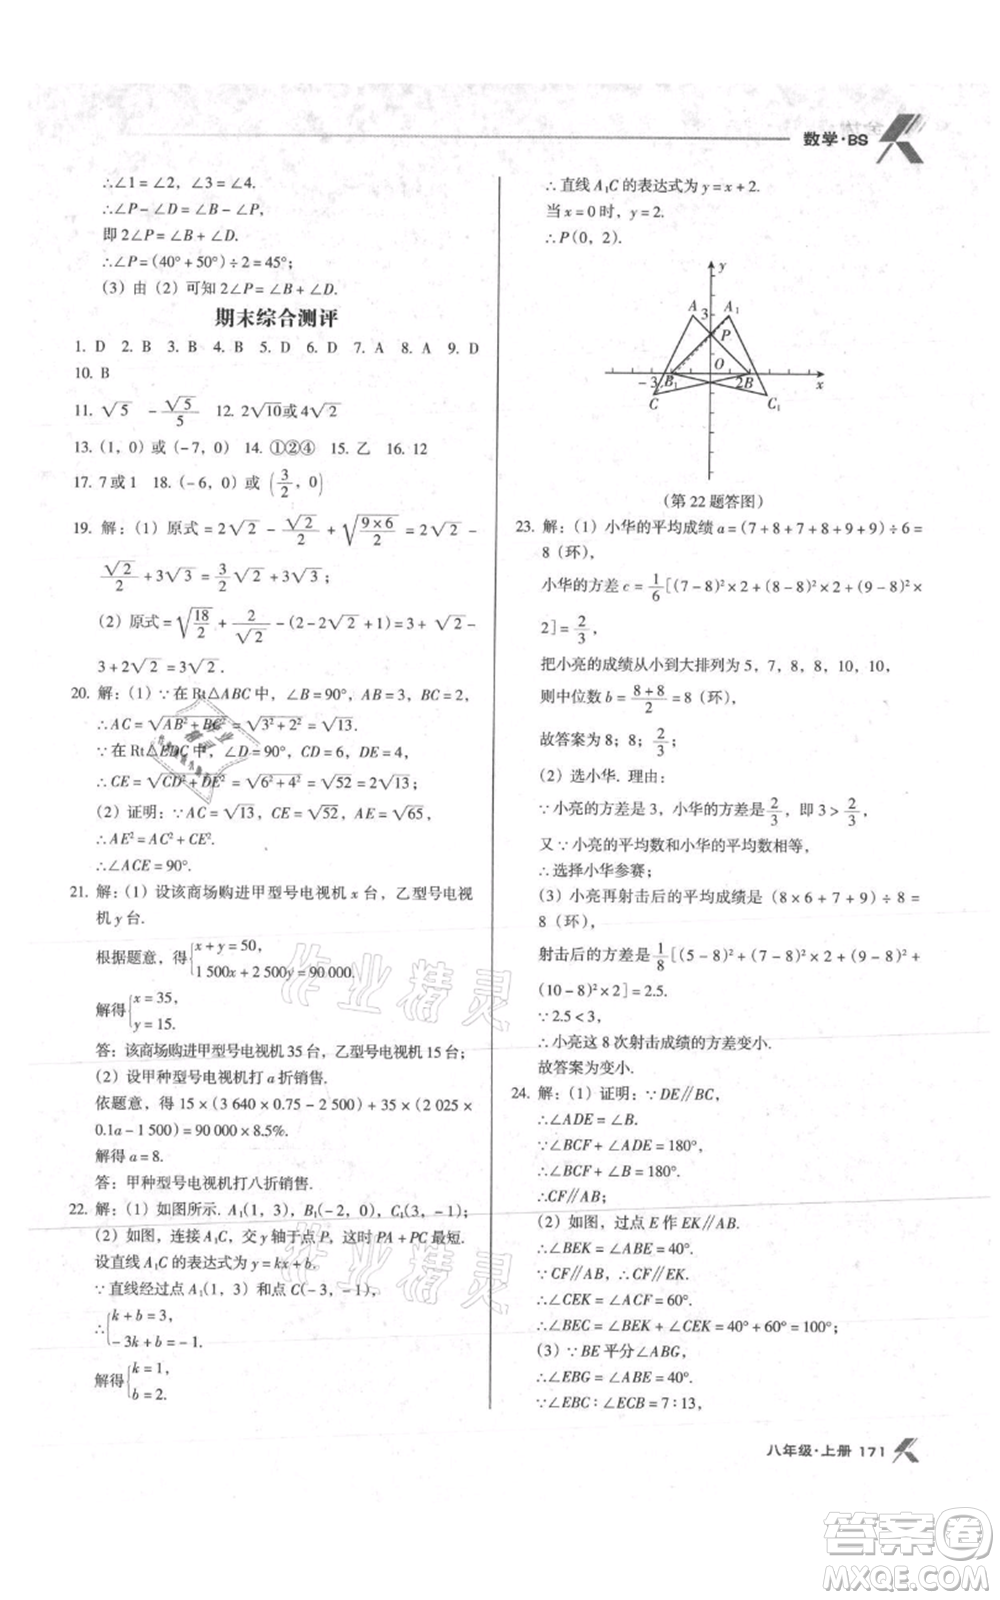 数学·BS
∴∠1=∠2，∠3=∠4.
∴∠P-∠D=∠B-∠P,
即 2∠P=∠B+∠D.
∴∠P=(40°+50°)÷2=45°；
（3）由（2）可知 2∠P=∠B+∠D.
期末综合测评
1. D 2. B 3. B 4. D 5. D 6. D 7. A 8. A 9. D
10. B
11. √5 -√5/5 12. 2√10或4√2
13.（1，0）或（-7，0） 14. ①②④ 15. 乙 16. 12
17. 7或1 18.（-6，0）或（3/2，0）
19. 解：（1）原式=2√2-√2/2+√(9×6/2)=2√2-
√2/2+3√3=3/2√2+3√3；
（2）原式=√(18/2)+2/√2-(2-2√2+1)=3+√2-
3+2√2=3√2.
20. 解：（1）∵在 Rt△ABC 中，∠B=90°，AB=3，BC=2，
∴AC=√(AB²+BC²)=√(3²+2²)=√13.
∵在 Rt△EDC 中，∠D=90°，CD=6，DE=4，
∴CE=√(CD²+DE²)=√(6²+4²)=√52=2√13；
（2）证明：∵AC=√13，CE=√52，AE=√65，
∴AE²=AC²+CE².
∴∠ACE=90°.
21. 解：（1）设该商场购进甲型号电视机 x 台，乙型号电视
机 y 台.
根据题意，得{x+y=50，
1 500x+2 500y=90 000.
解得{x=35，
y=15.
答：该商场购进甲型号电视机 35 台，乙型号电视机 15 台；
（2）设甲种型号电视机打 a 折销售.
依题意，得 15×(3 640×0.75-2 500)+35×(2 025×
0.1a-1 500)=90 000×8.5%.
解得 a=8.
答：甲种型号电视机打八折销售.
22. 解：（1）如图所示. A₁(1，3)，B₁(-2，0)，C₁(3，-1)；
（2）如图，连接 A₁C，交 y 轴于点 P，这时 PA+PC 最短.
设直线 A₁C 的表达式为 y=kx+b.
∵直线经过点 A₁(1，3) 和点 C(-3，-1)，
∴{k+b=3，
-3k+b=-1.
解得{k=1，
b=2.
∴直线 A₁C 的表达式为 y=x+2.
当 x=0 时，y=2.
∴P(0，2).
y
A 3 A₁
P
O
-3 B₁ 2B x
C C₁
（第 22 题答图）
23. 解：（1）小华的平均成绩 a=(7+8+7+8+9+9)÷6=
8（环），
小华的方差 c=1/6[(7-8)²×2+(8-8)²×2+(9-8)²×
2]=2/3，
把小亮的成绩从小到大排列为 5，7，8，8，10，10，
则中位数 b=(8+8)/2=8（环），
故答案为 8；8；2/3；
（2）选小华. 理由：
∵小亮的方差是 3，小华的方差是2/3，即 3＞2/3，
又∵小亮的平均数和小华的平均数相等，
∴选择小华参赛；
（3）小亮再射击后的平均成绩是（8×6+7+9）÷8=
8（环），
射击后的方差是1/8[(5-8)²+(7-8)²×2+(8-8)²×2+(9-8)²+
(10-8)²×2]=2.5.
∵2.5＜3，
∴小亮这 8 次射击成绩的方差变小.
故答案为变小.
24. 解：（1）证明：∵DE∥BC，
∴∠ADE=∠B.
∵∠BCF+∠ADE=180°，
∴∠BCF+∠B=180°.
∴CF∥AB；
（2）如图，过点 E 作 EK∥AB.
∴∠BEK=∠ABE=40°.
∵CF∥AB，∴CF∥EK.
∴∠CEK=∠ACF=60°.
∴∠BEC=∠BEK+∠CEK=40°+60°=100°；
（3）∵BE 平分∠ABG，
∴∠EBG=∠ABE=40°.
∵∠EBC∶∠ECB=7∶13，
八年级·上册 171
作业精灵
作业精灵
答案卷
MXQE.COM